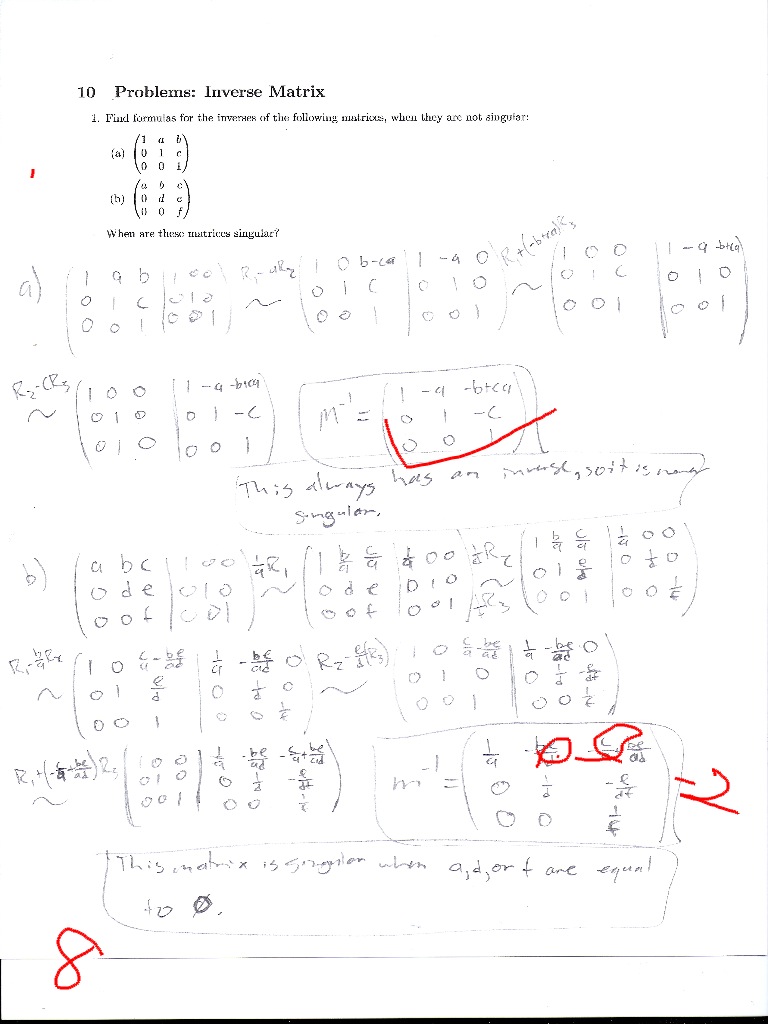 10 Problems: Inverse Matrix
1. Find formulas for the inverses of the following matrices, when they are not singular:
(a) (1 a b
0 1 c
0 0 1)
(b) (a b c
0 d e
0 0 f)
When are these matrices singular?
a) (1 a b | 1 0 0
0 1 c | 0 1 0
0 0 1 | 0 0 1) R₁-aR₂ ~ (1 0 b-ca | 1 -a 0
0 1 c | 0 1 0
0 0 1 | 0 0 1) R₁+(-b+ca)R₃ ~ (1 0 0 | 1 -a -b+ca
0 1 c | 0 1 0
0 0 1 | 0 0 1)
R₂-cR₃ ~ (1 0 0 | 1 -a -b+ca
0 1 0 | 0 1 -c
0 1 0 | 0 0 1) M⁻¹ = (1 -a -b+ca
0 1 -c
0 0 1)
This always has an inverse, so it is never
singular.
b) (a b c | 1 0 0
0 d e | 0 1 0
0 0 f | 0 0 1) 1/a R₁ ~ (1 b/a c/a | 1/a 0 0
0 d e | 0 1 0
0 0 f | 0 0 1) 1/d R₂ ~ 1/f R₃ (1 b/a c/a | 1/a 0 0
0 1 e/d | 0 1/d 0
0 0 1 | 0 0 1/f)
R₁-b/a R₂ ~ (1 0 c/a-be/ad | 1/a -be/ad 0
0 1 e/d | 0 1/d 0
0 0 1 | 0 0 1/f) R₂-e/d(R₃) ~ (1 0 c/a-be/ad | 1/a -be/ad 0
0 1 0 | 0 1/d -e/df
0 0 1 | 0 0 1/f)
R₁+(-c/a+be/ad)R₃ ~ (1 0 0 | 1/a -be/ad -c/a+be/ad
0 1 0 | 0 1/d -e/df
0 0 1 | 0 0 1/f) m⁻¹ = (1/a be/ad
0 1/d -e/df
0 0 1/f) -2
This matrix is singular when a, d, or f are equal
to 0.
8